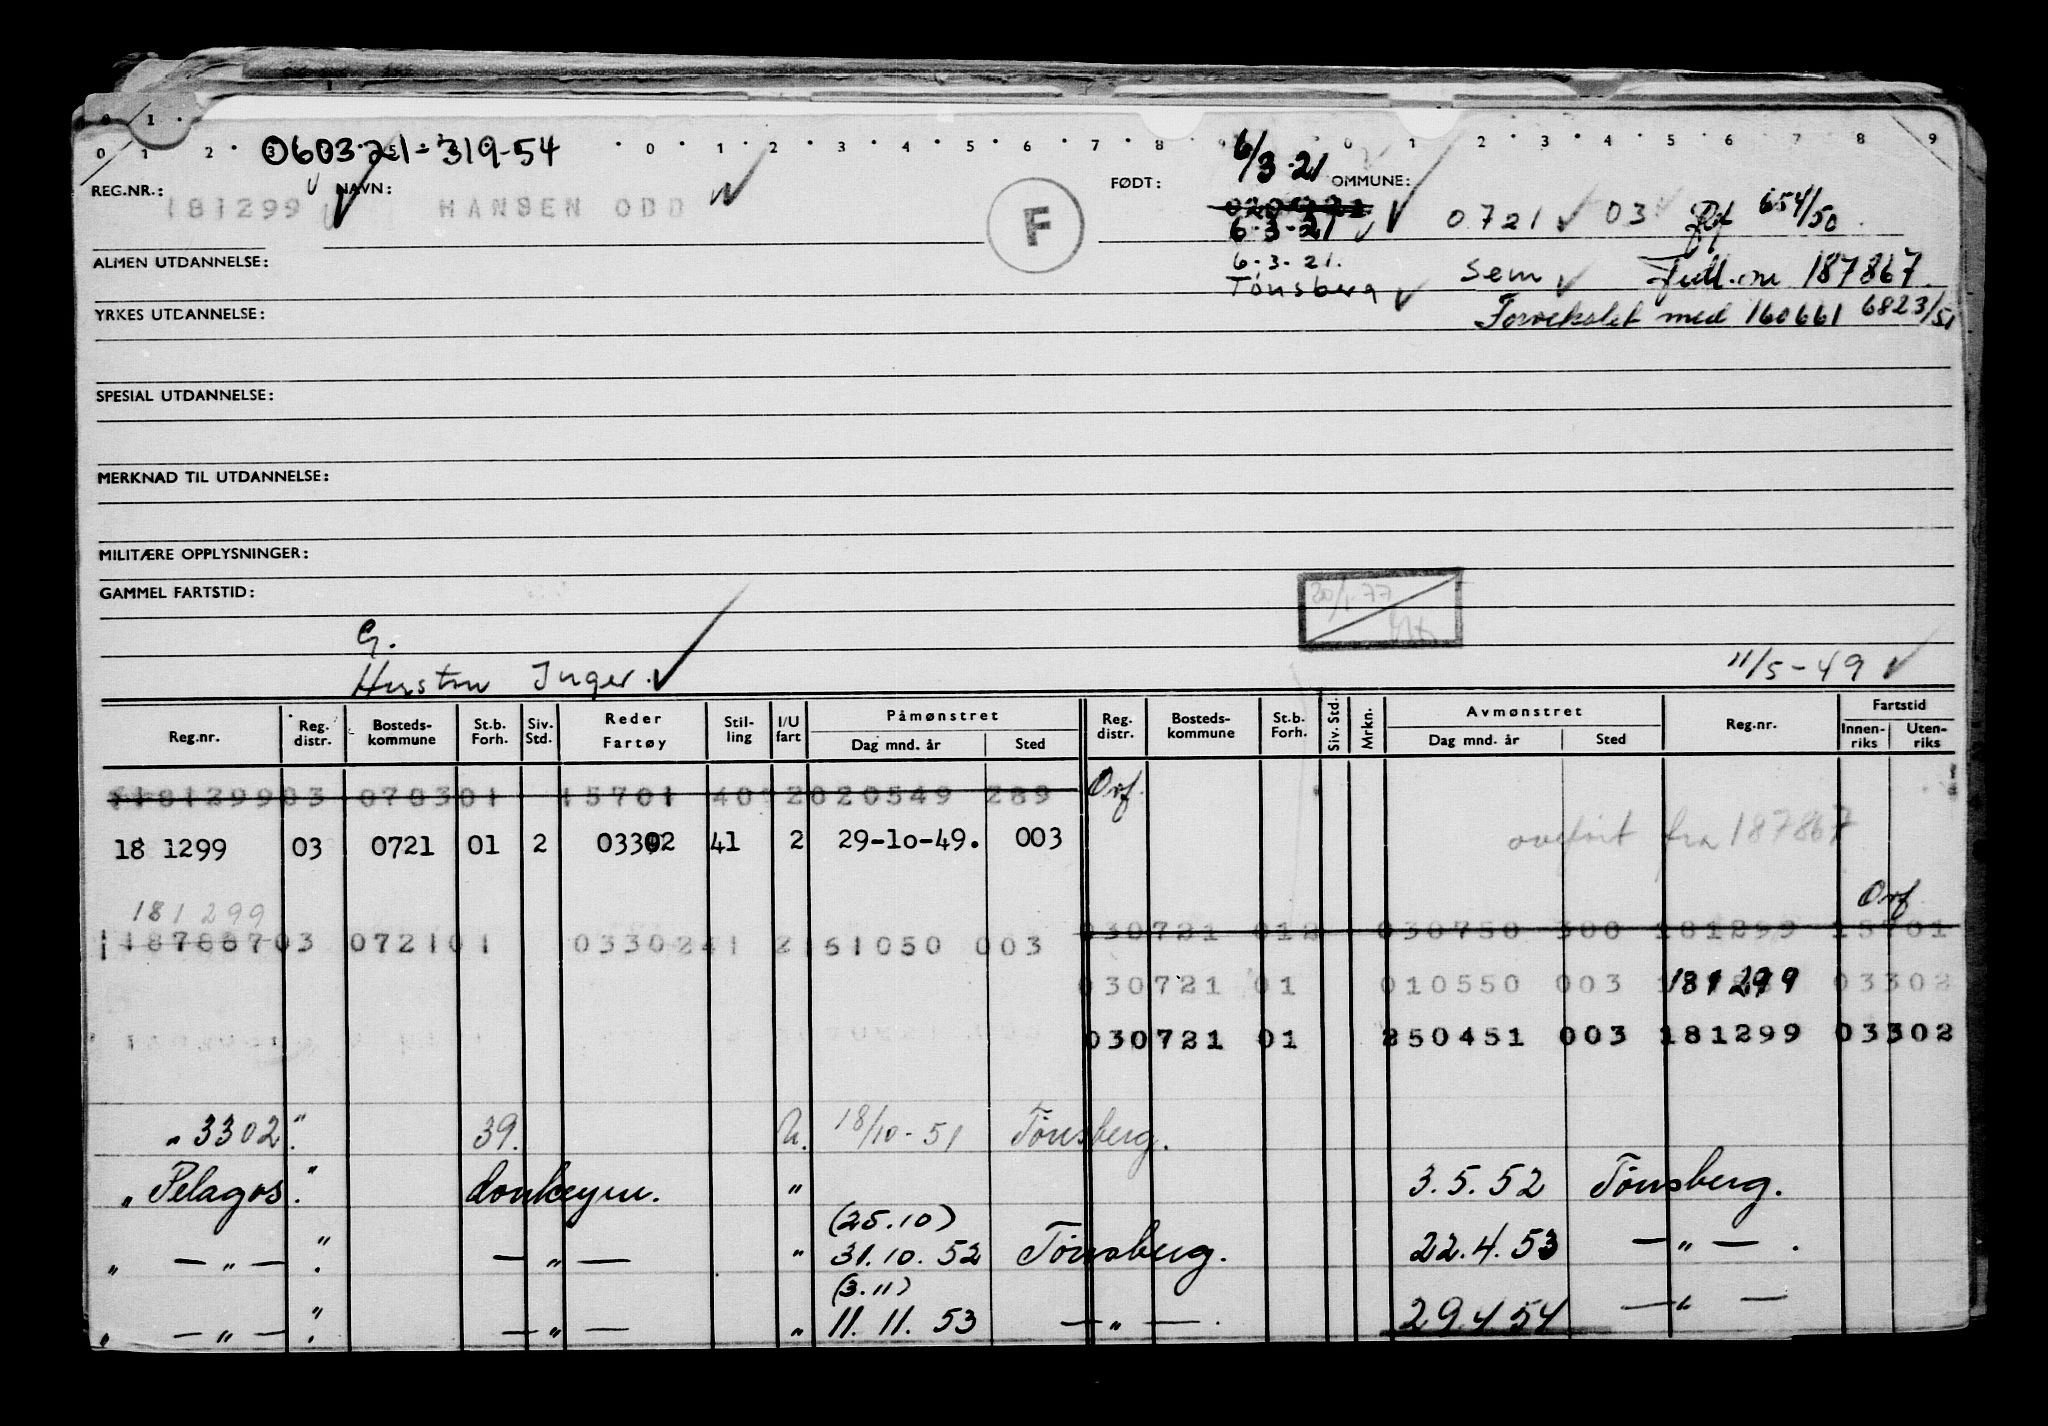 0 1
0 1 2 3 5 0 1 2 3 4 5 6 7 8 9 0 1 2 3 4 5 6 7 8 9
060321-319-54
6/3-21
REG.NR.: 181299 NAVN: HANSEN ODD F FØDT: OMMUNE:
6-3-21 0721 03 654/50
ALMEN UTDANNELSE: 6-3-21. Tønsberg Sem 187867
YRKES UTDANNELSE: Forvekslet med 160661 6823/51
SPESIAL UTDANNELSE:
MERKNAD TIL UTDANNELSE:
MILITÆRE OPPLYSNINGER:
GAMMEL FARTSTID: 20/1-77
G.
Hustru Inger. 11/5-49
Reg.nr. Reg. distr. Bosteds-kommune St.b. Forh. Siv. Std. Reder Fartøy Stil-ling I/U fart Påmønstret Dag mnd. år Sted Reg. distr. Bosteds-kommune St.b. Forh. Siv. Std. Mrkn. Avmønstret Dag mnd. år Sted Reg.nr. Fartstid Innen-riks Uten-riks
18129903 070301 15701 40 2020549 289 Orf.
18 1299 03 0721 01 2 03302 41 2 29-10-49. 003 overført fra 187867
181299 Orf
18786703 072101 0330241 2151050 003 030721 012 030750 300 181299 15701
030721 01 010550 003 181299 03302
030721 01 250451 003 181299 03302
" 3302 " 39. U. 18/10-51 Tønsberg.
" Pelagos. " donkeym. " 3.5.52 Tønsberg.
(25.10)
" — " — " — " — " 31.10.52 Tønsberg. 22.4.53 — " — .
(3.11)
" — " — " — " — " 11.11.53 — " — . 29454 — " —